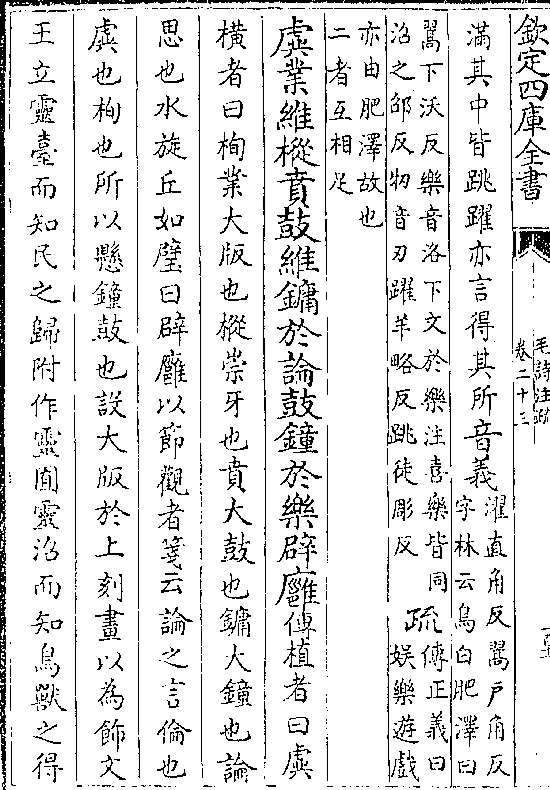 欽定四庫全書
毛詩注疏
卷二十三
滿其中皆跳躍亦言得其所音義
濯直角反翯户角反
字林云鳥白肥澤曰
翯下沃反樂音洛下文於樂注喜樂皆同
沼之邵反物音刃躍羊略反跳徒彫反
疏
傳正義曰
娱樂遊戲
亦由肥澤故也
二者互相足
虡業維樅賁鼓維鏞於論鼓鐘於樂辟廱傳植者曰虡
横者曰栒業大版也樅崇牙也賁大鼓也鏞大鐘也論
思也水旋丘如璧曰辟廱以節觀者箋云論之言倫也
虡也栒也所以懸鐘鼓也設大版於上刻畫以為飾文
王立靈臺而知民之歸附作靈囿靈沼而知鳥獸之得